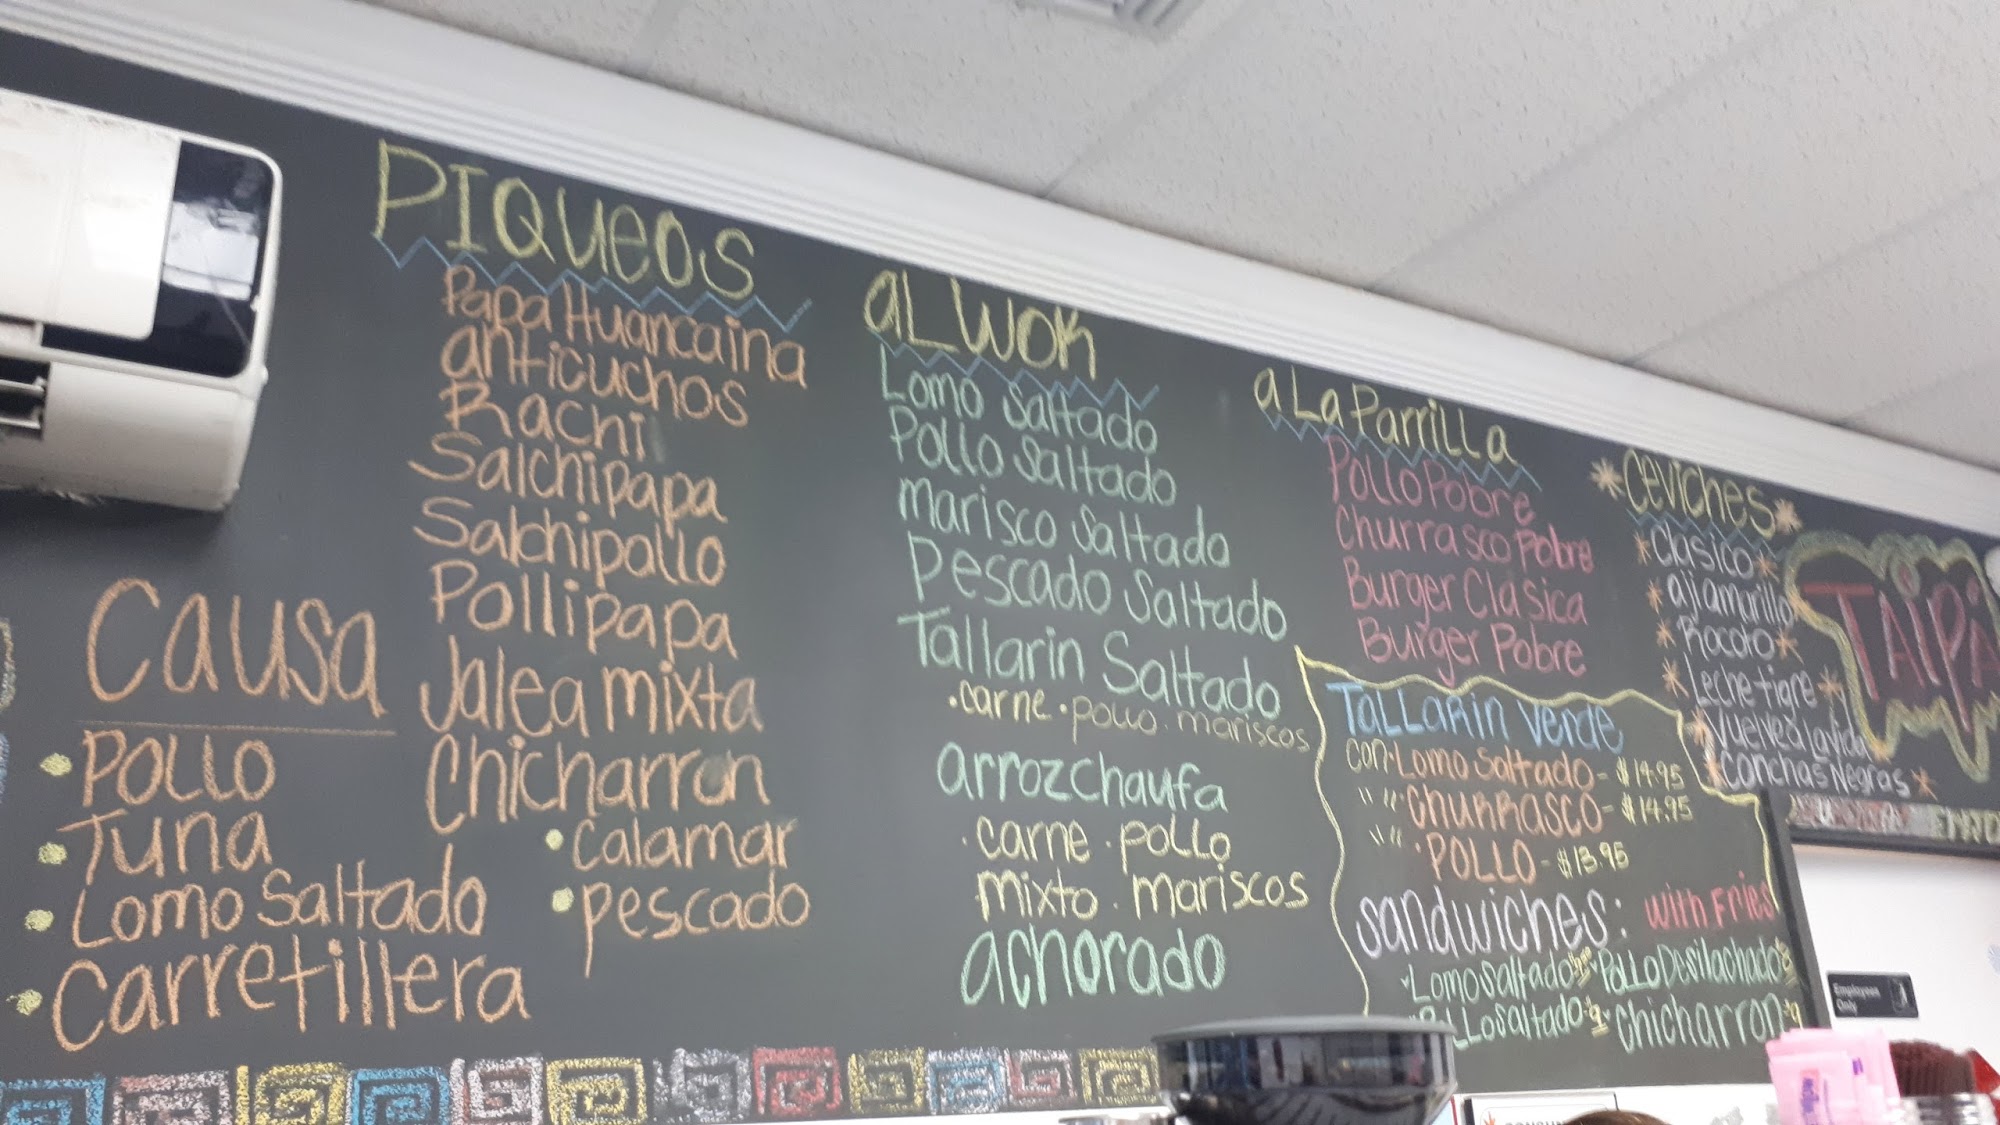 PIQUEOS
Papa Huancaina
anticuchos
Rachi
Salchipapa
Salchipollo
Pollipapa
Jalea mixta
Chicharron
• calamar
• pescado
Causa
• Pollo
• Tuna
• Lomo Saltado
• Carretillera
aL WOK
Lomo Saltado
Pollo Saltado
marisco Saltado
Pescado Saltado
Tallarin Saltado
• carne • pollo • mariscos
arroz chaufa
• carne • pollo
mixto • mariscos
achorado
a La Parrilla
Pollo Pobre
Churrasco Pobre
Burger Clásica
Burger Pobre
Tallarin Verde
con • Lomo Saltado - $14.95
" " • Churrasco - $14.95
" " • POLLO - $13.95
Sandwiches: with Fries
Lomo Saltado Pollo Desilachado 9
Pollo Saltado 9 Chicharron 9
Ceviches
Clasico
aji amarillo
Rocoto
Leche tigre
Vuelve a la vida
Conchas Negras
TAiPá
Employees
Only